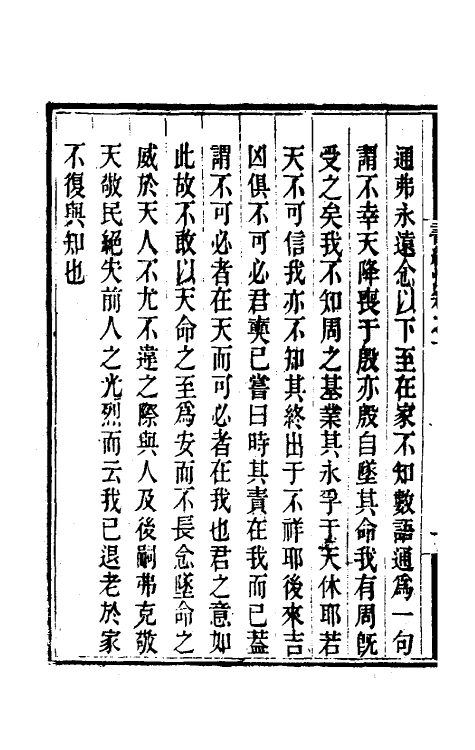 通弗永遠念以下至在家不知數語通爲一句
謂不幸天降喪于殷亦殷自墜其命我有周旣
受之矣我不知周之基業其永孚于天休耶若
天不可信我亦不知其終出于不祥耶後來吉
凶俱不可必君奭已嘗曰時其責在我而已蓋
謂不可必者在天而可必者在我也君之意如
此故不敢以天命之至爲安而不長念墜命之
威於天人不尤不違之際與人及後嗣弗克敬
天敬民絕失前人之光烈而云我已退老於家
不復與知也